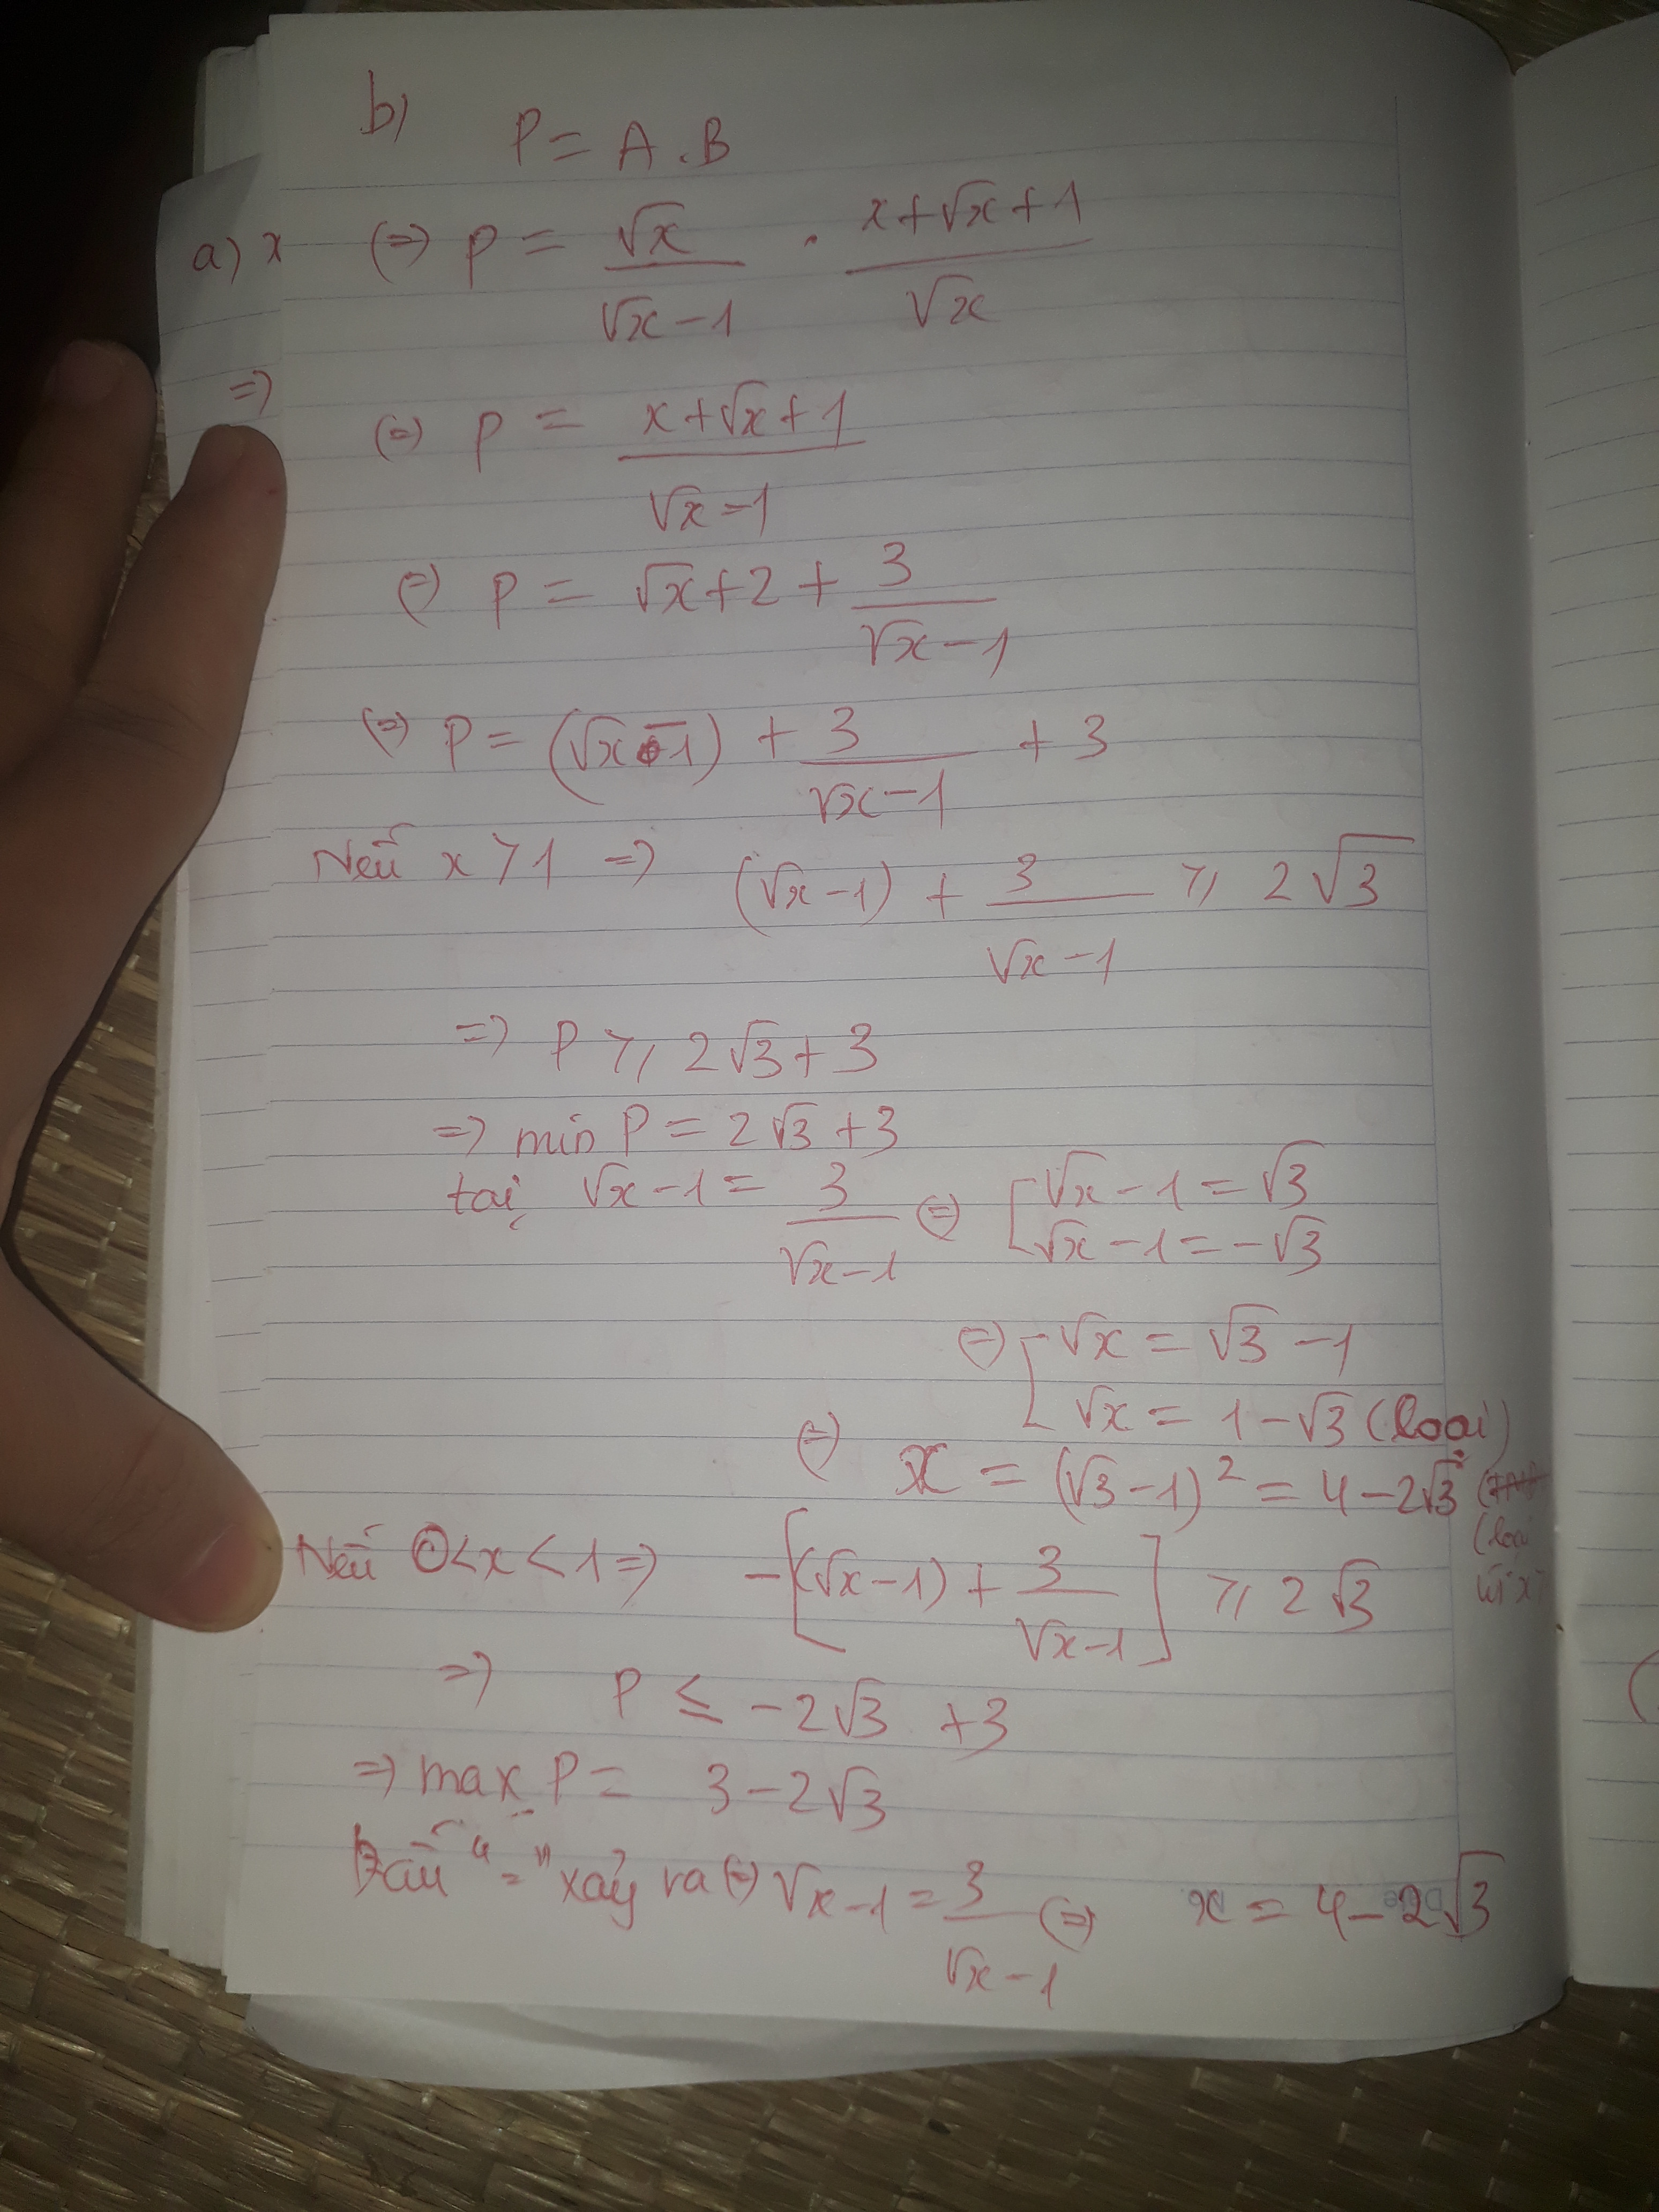 b)
P = A.B
a) x
(=) P = √x / (√x - 1) . (x + √x + 1) / √x
=)
(=) P = (x + √x + 1) / (√x - 1)
(=) P = √x + 2 + 3 / (√x - 1)
(=) P = (√x - 1) + 3 / (√x - 1) + 3
Nếu x > 1 =) (√x - 1) + 3 / (√x - 1) ≥ 2√3
=) P ≥ 2√3 + 3
=) min P = 2√3 + 3
tại √x - 1 = 3 / (√x - 1) (=) [ √x - 1 = √3
√x - 1 = -√3
(=) [ √x = √3 - 1
√x = 1 - √3 (loại)
(=) x = (√3 - 1)² = 4 - 2√3
(loại
vì x
Nếu 0 < x < 1 =) -[(√x - 1) + 3 / (√x - 1)] ≥ 2√3
=) P ≤ -2√3 + 3
=) max P = 3 - 2√3
Dấu "=" xảy ra (=) √x - 1 = 3 / (√x - 1) (=) x = 4 - 2√3